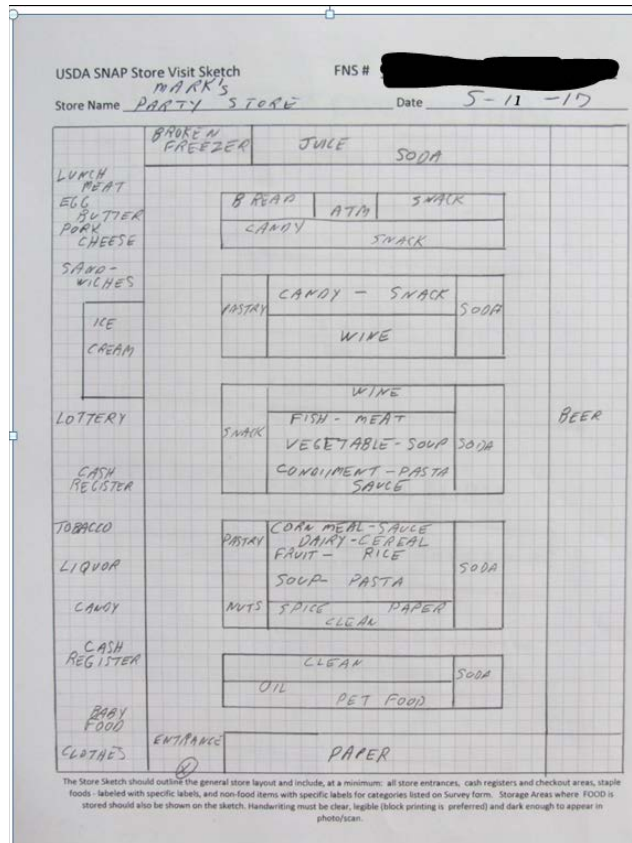 USDA SNAP Store Visit Sketch FNS #
MARK'S
Store Name PARTY STORE Date 5-11-17
BROKEN
FREEZER
JUICE
SODA
LUNCH
MEAT
EGG
BUTTER
PORK
CHEESE
SAND-
WICHES
ICE
CREAM
LOTTERY
CASH
REGISTER
TOBACCO
LIQUOR
CANDY
CASH
REGISTER
BABY
FOOD
CLOTHES
BREAD ATM SNACK
CANDY
SNACK
PASTRY
CANDY - SNACK
WINE
SODA
SNACK
WINE
FISH - MEAT
VEGETABLE - SOUP
CONDIMENT - PASTA
SAUCE
SODA
BEER
PASTRY
CORN MEAL - SAUCE
DAIRY - CEREAL
FRUIT - RICE
SOUP - PASTA
SODA
NUTS
SPICE PAPER
CLEAN
CLEAN
OIL
PET FOOD
SODA
ENTRANCE
X
PAPER
The Store Sketch should outline the general store layout and include, at a minimum: all store entrances, cash registers and checkout areas, staple
foods - labeled with specific labels, and non-food items with specific labels for categories listed on Survey form. Storage Areas where FOOD is
stored should also be shown on the sketch. Handwriting must be clear, legible (block printing is preferred) and dark enough to appear in
photo/scan.